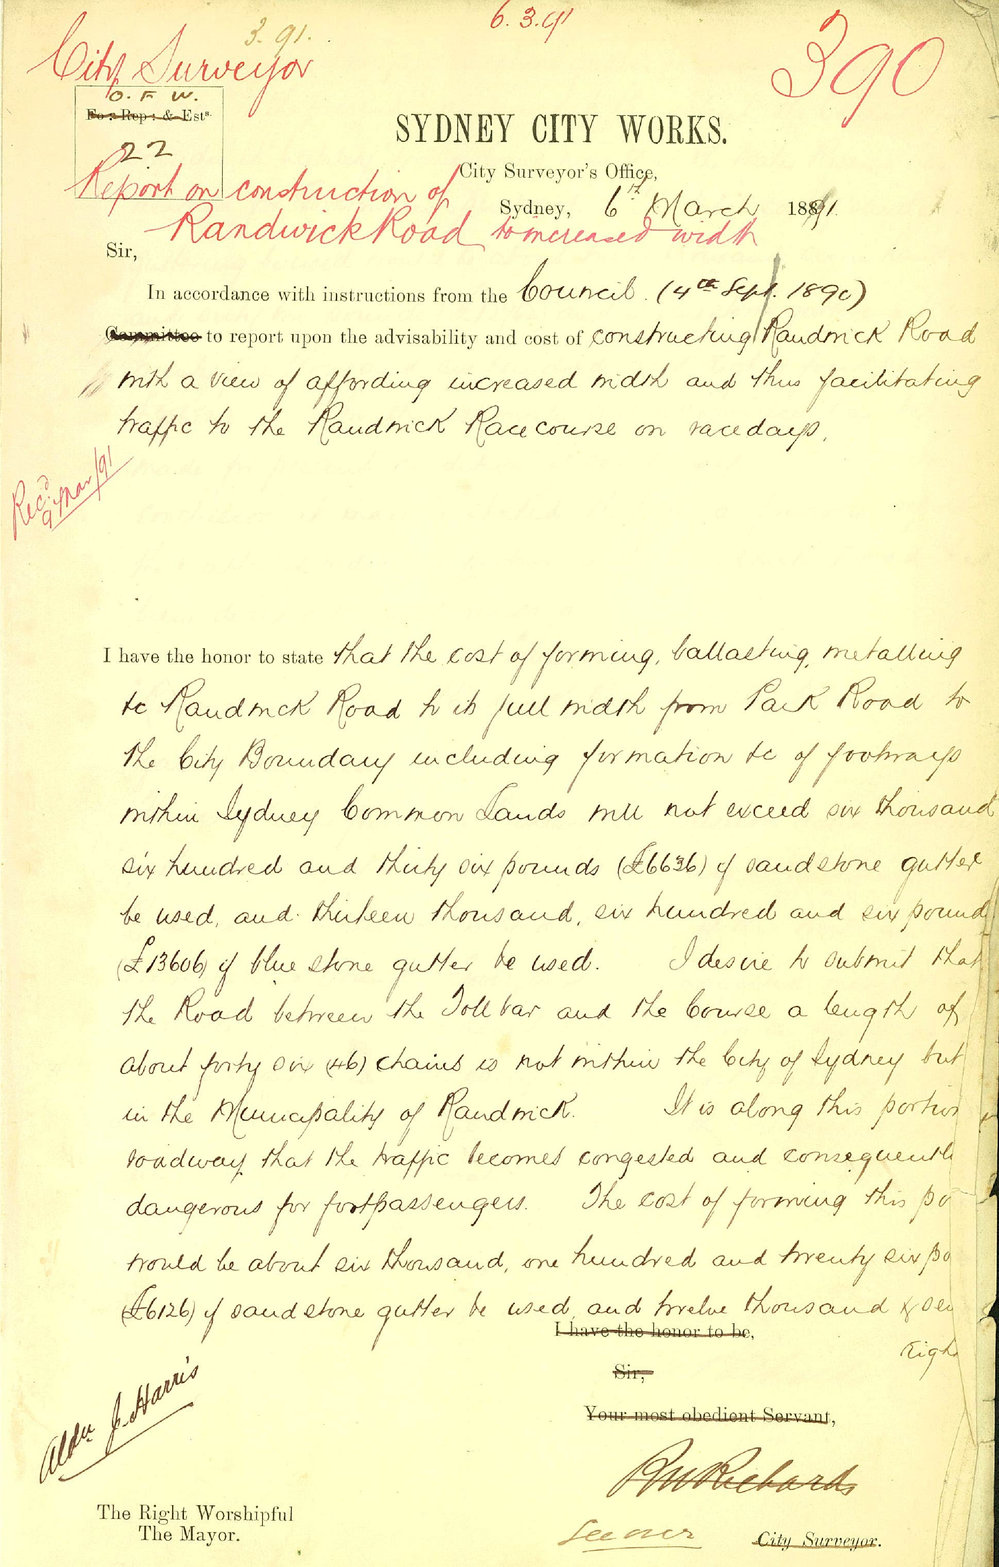 6.3.91
3.91.
390
City Surveyor
O. F. W.
For Rep: & Ests.
22
SYDNEY CITY WORKS.
City Surveyor's Office,
Report on construction of
Sydney, 6th March 1891
Randwick Road to increased width
Sir,
In accordance with instructions from the Council. (4th Sept. 1890)
Committee to report upon the advisability and cost of constructing Randwick Road
with a view of affording increased width and thus facilitating
traffic to the Randwick Racecourse on racedays.
Recd 9 Mar/91
I have the honor to state that the cost of forming, ballasting, metalling
&c Randwick Road to its full width from Park Road to
the City Boundary including formation &c of footways
within Sydney Common Lands will not exceed six thousand
six hundred and thirty six pounds (£6636) if sandstone gutter
be used, and thirteen thousand, six hundred and six pound
(£13606) if blue stone gutter be used. I desire to submit that
the Road between the Toll bar and the Course a length of
about forty six (46) chains is not within the City of Sydney but
in the Municipality of Randwick. It is along this portion
roadway that the traffic becomes congested and consequentl
dangerous for footpassengers. The cost of forming this po
would be about six thousand, one hundred and twenty six po
(£6126) if sandstone gutter be used, and twelve thousand & sev
eigh
I have the honor to be,
Sir,
Your most obedient Servant,
Aldn J. Harris
RWRichards
The Right Worshipful
The Mayor.
See over
City Surveyor.